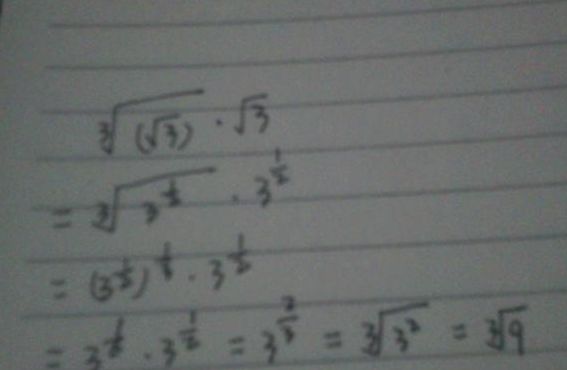 ∛(√3) · √3
= ∛3^½ · 3^½
= (3^½)^⅓ · 3^½
= 3^⅙ · 3^½ = 3^⅔ = ∛3² = ∛9